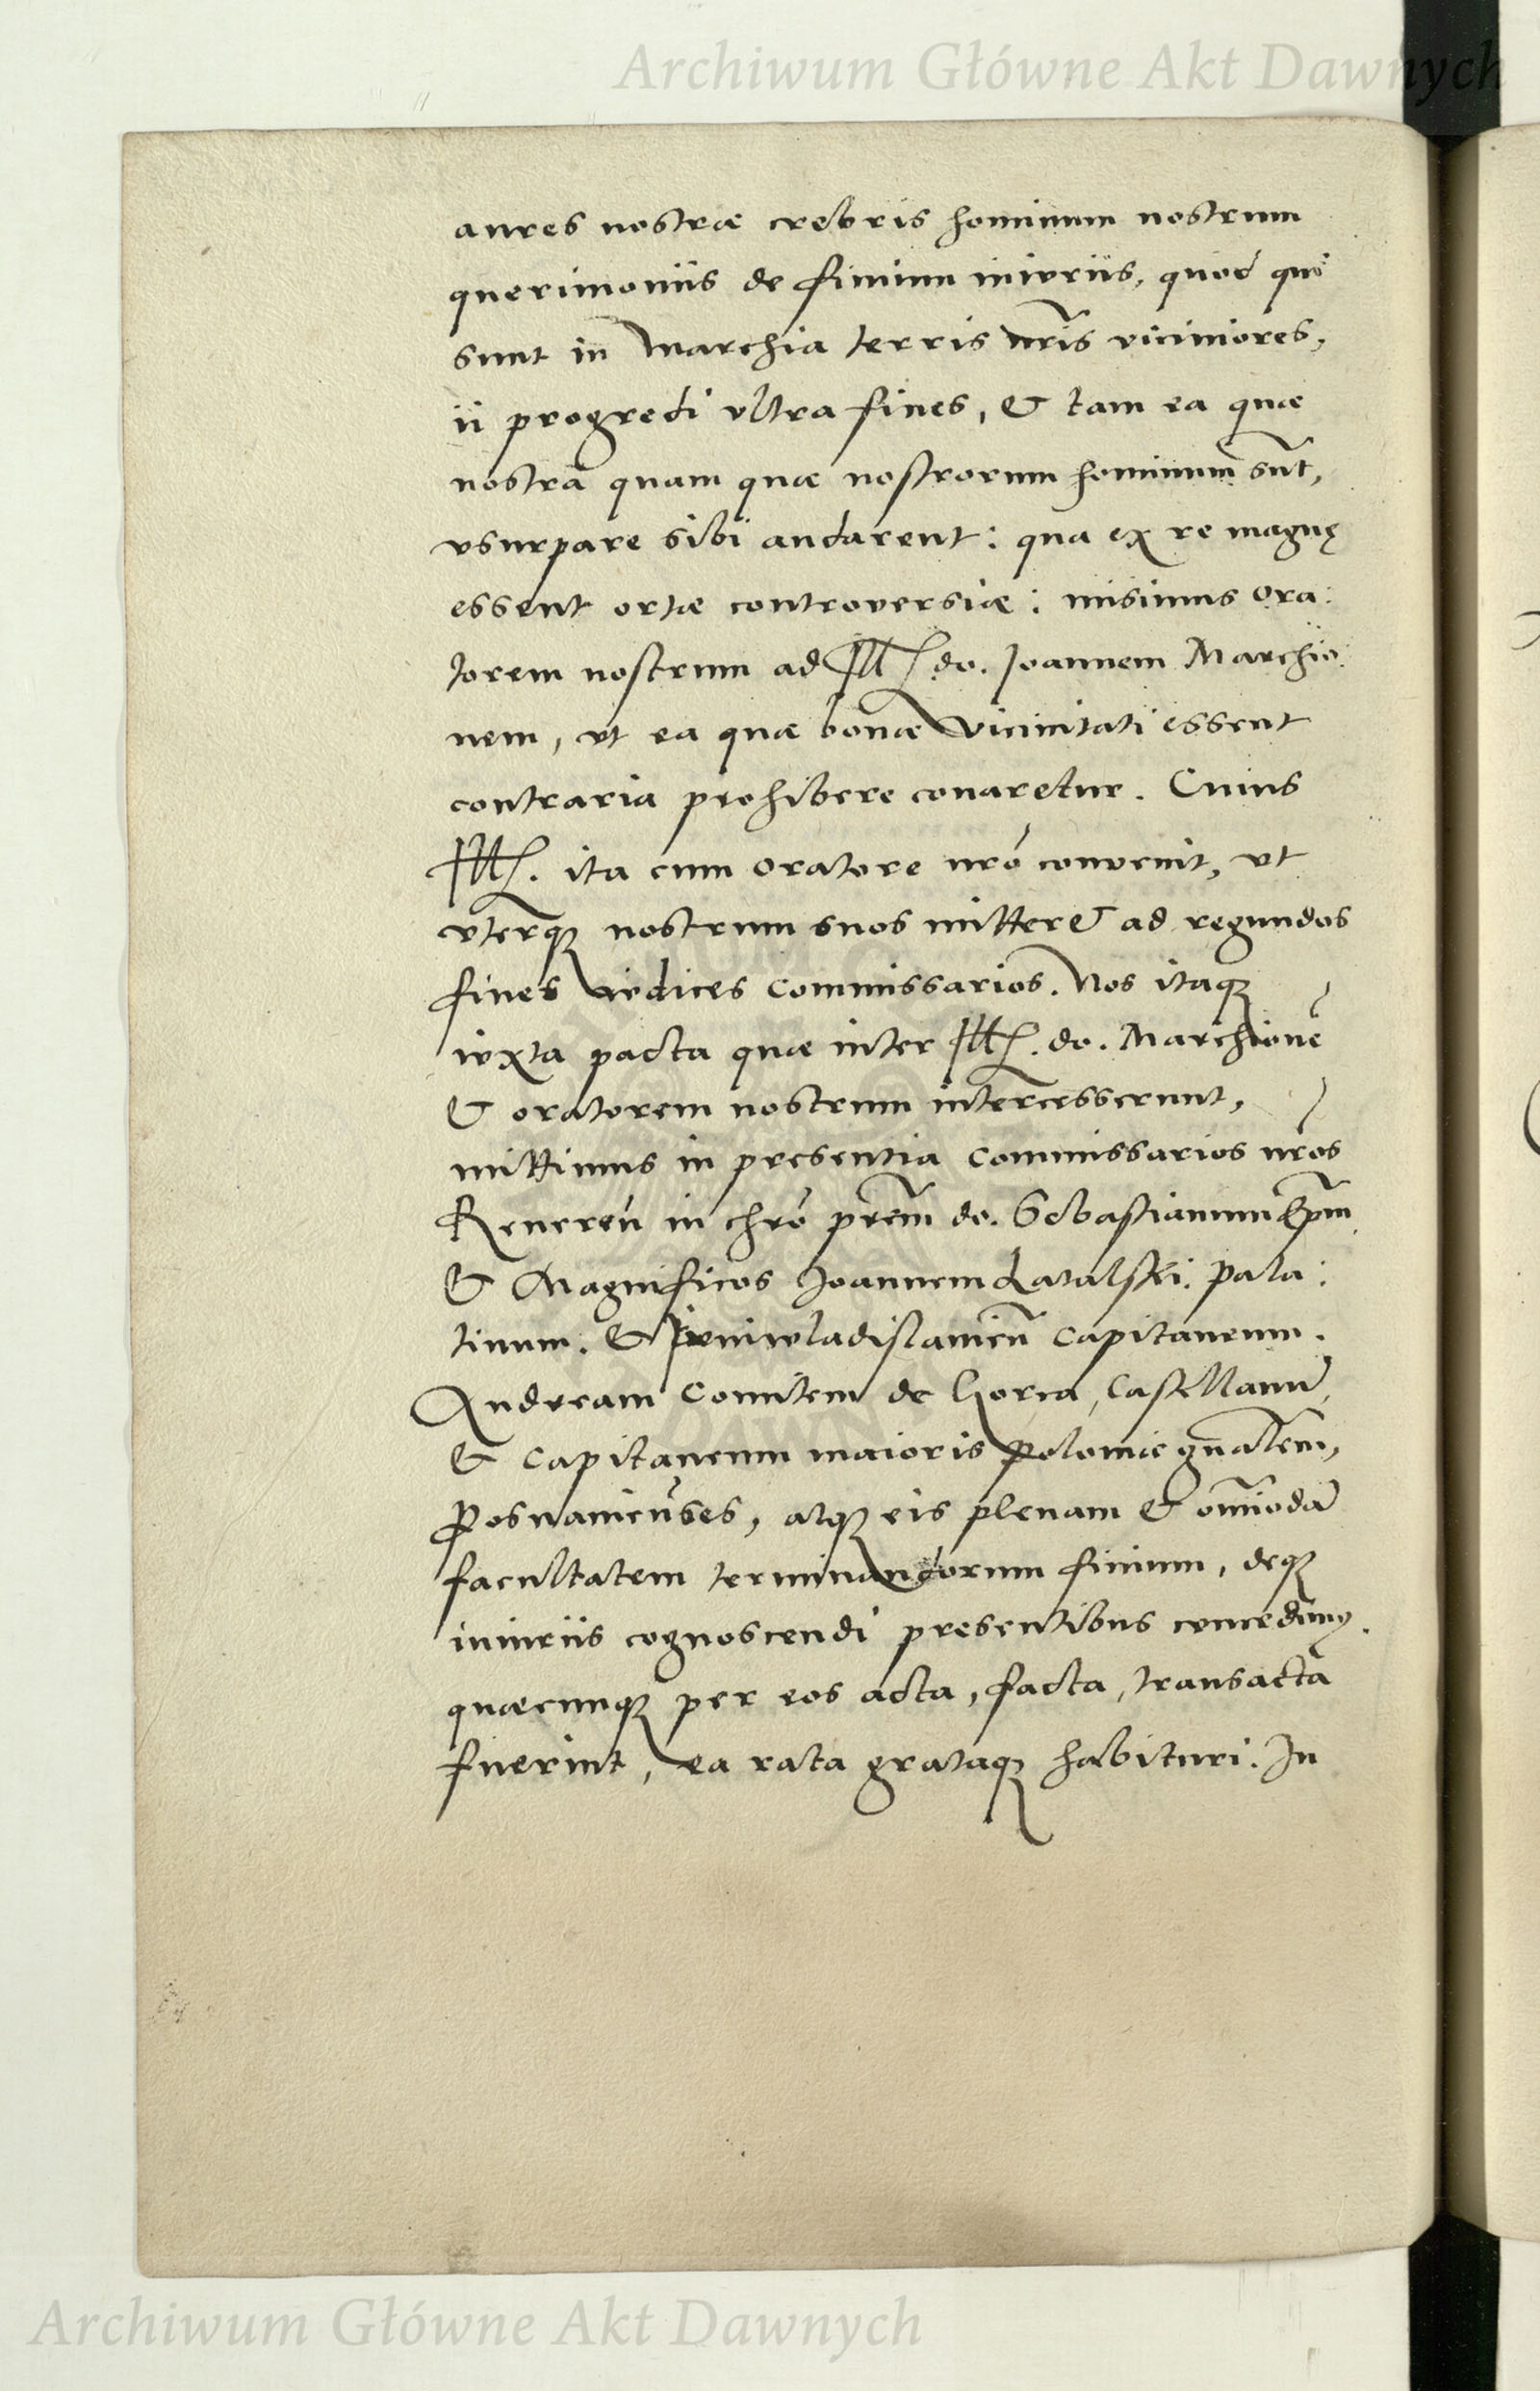 Archiwum Główne Akt Dawnych
aures nostræ crebris hominum nostrum
querimoniis de finium iniuriis, quod qui
sunt in Marchia terris nr̃is viciniores,
ii progredi vltra fines, & tam ea quæ
nostra quam quæ nostrorum hominum sũt,
vsurpare sibi audarent: qua ex re magnę
essent ortæ controversiæ: misimus ora:
torem nostrum ad Ill. do. Joannem Marchio:
nem, vt ea quæ bonæ vicinitati essent
contraria prohibere conaretur. Cuius
Ill. ita cum oratore nrõ convenit, vt
vterq; nostrum suos mitteret ad regundos
fines iudices commissarios. Nos itaq;
iuxta pacta quæ inter Ill. do. Marchionẽ
& oratorem nostrum intercesserunt,
mittimus in presentia commissarios nrõs
Revereñ in chrõ prẽm do. Sebastianum Ep̃m
& Magnificos Joannem Latalski. pala:
tinum. & Iuniwladislauieñ capitaneum.
Andream Comitem de Gorca, Castellanũ,
& Capitaneum maioris Poloniæ gñalem,
Posnanieñses, atq; eis plenam & om̃iodã
facultatem terminandorum finium, deq;
iniuriis cognoscendi presentibus concedimꝰ.
quæcunq; per eos acta, facta, transacta
fuerint, ea rata grataq; habituri. In
Archiwum Główne Akt Dawnych